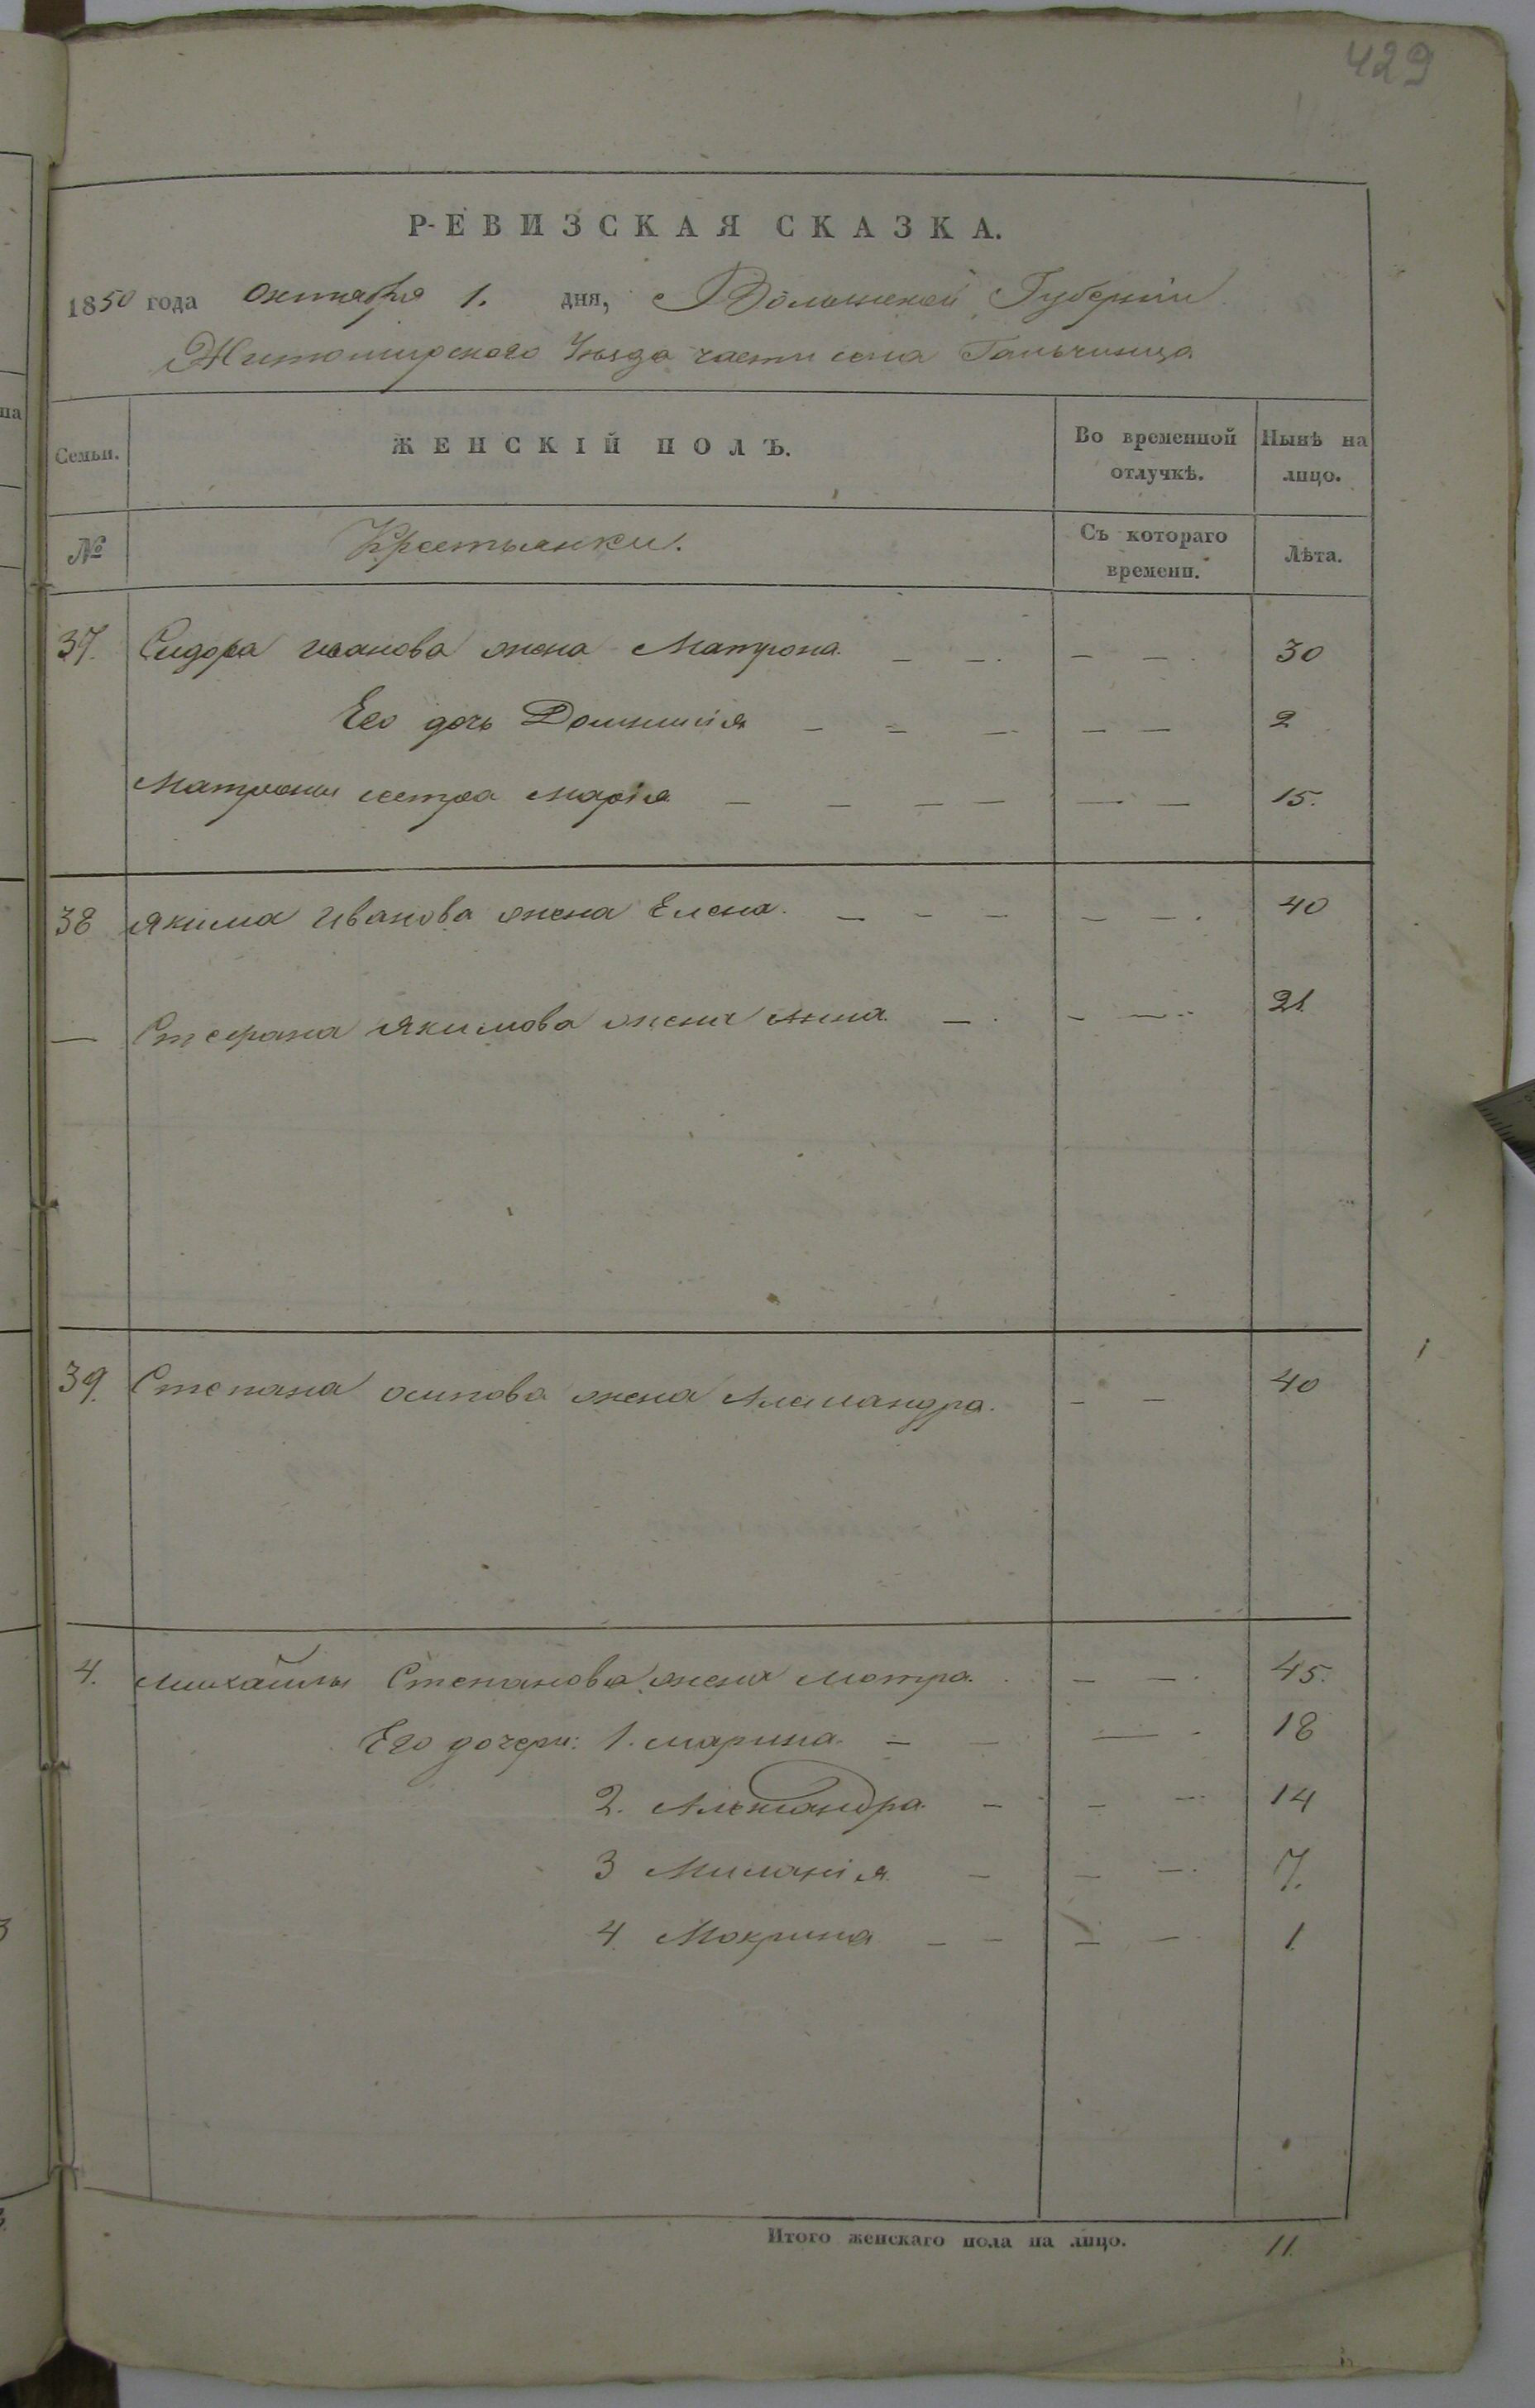 429
РЕВИЗСКАЯ СКАЗКА.
1850 года октября 1. дня, Волынской Губернии
Житомирского Уезда части села Гальчинца
Семьи. ЖЕНСКІЙ ПОЛЪ. Во временной отлучкѣ. Нынѣ на лицо.
№ Крестьянки. Съ котораго времени. Лѣта.
37. Сидора иванова жена Матрона. — — . — — . 30
Его дочь Домникія — — — — — 2
Матроны сестра марія — — — — — — 15.
38 якима иванова жена Елена. — — — — — . 40
— Стефана якимова жена Анна. — . — — 21
39. Степана осипова жена Александра. — — 40
4. михайлы Степанова жена мотра. — — . 45.
Его дочери: 1. марина. — — — . 18
2. Александра. — — — 14
3 Миланія — — — . 7.
4. Мокрина — — — — 1
Итого женскаго пола на лицо. 11.